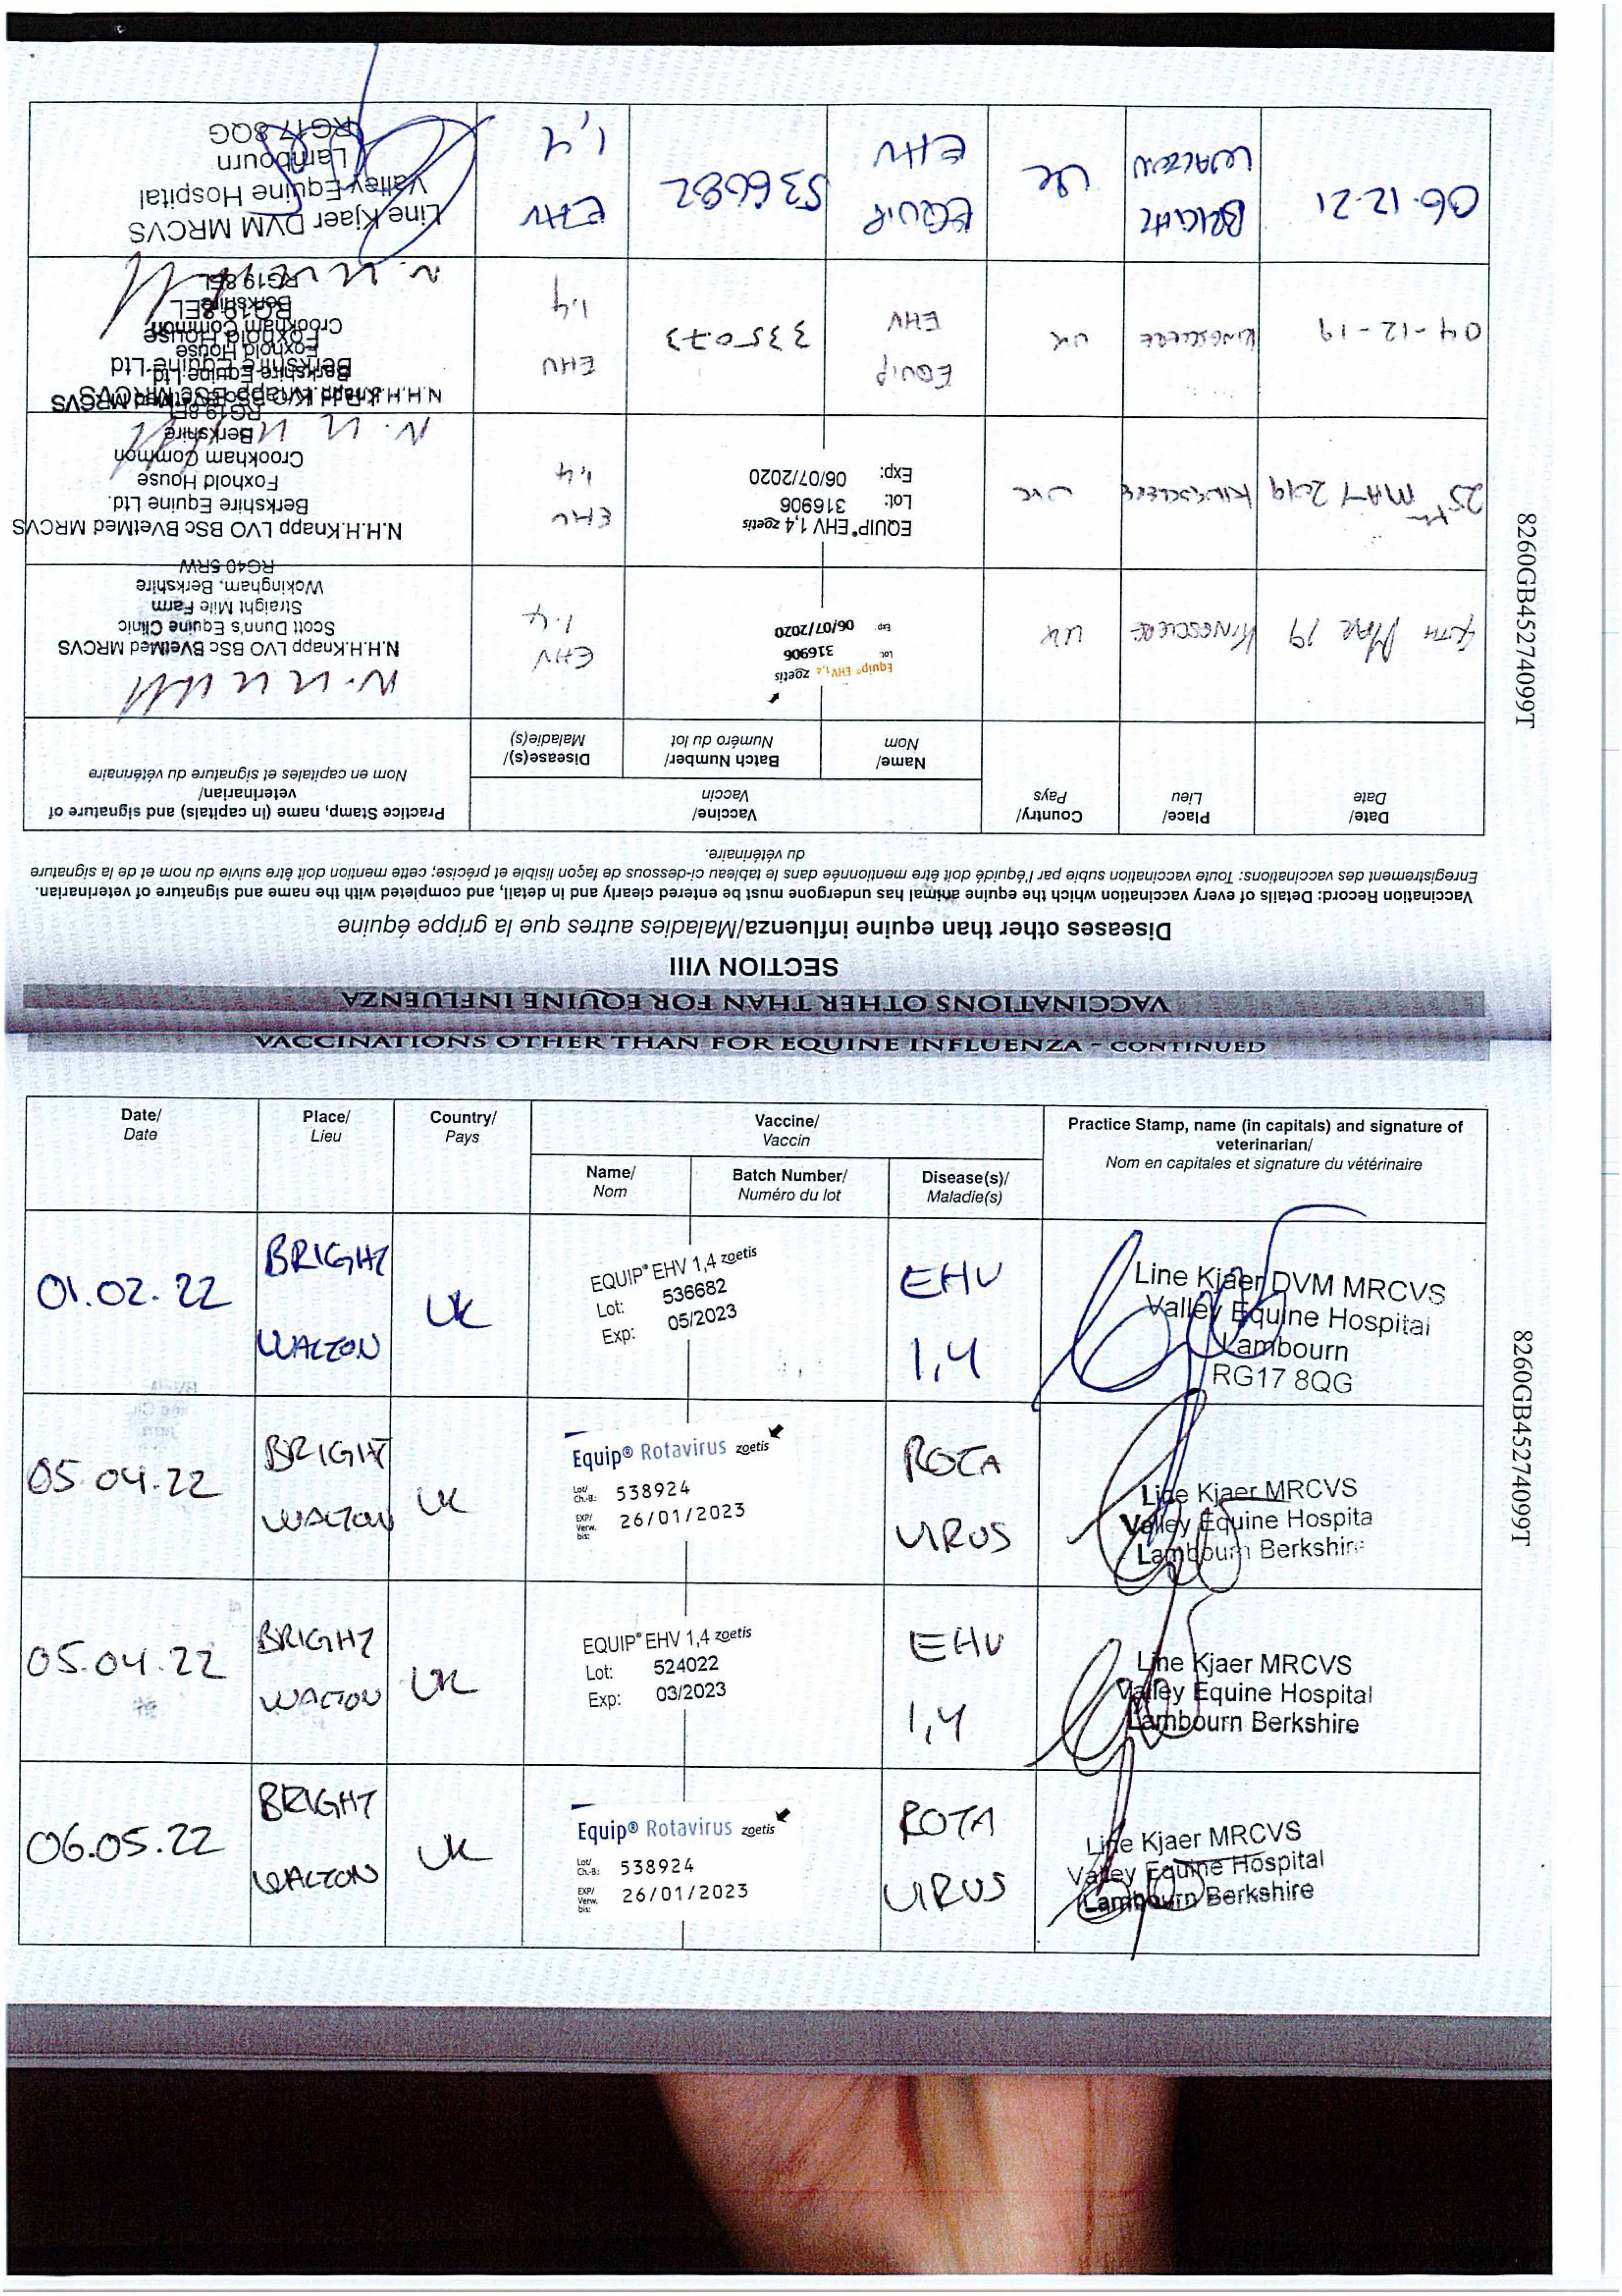 VACCINATIONS OTHER THAN FOR EQUINE INFLUENZA
SECTION VIII
Diseases other than equine influenza/Maladies autres que la grippe équine
Vaccination Record: Details of every vaccination which the equine animal has undergone must be entered clearly and in detail, and completed with the name and signature of veterinarian.
Enregistrement des vaccinations: Toute vaccination subie par l'équidé doit être mentionnée dans le tableau ci-dessous de façon lisible et précise; cette mention doit être suivie du nom et de la signature
du vétérinaire.
Date/
Date
Place/
Lieu
Country/
Pays
Vaccine/
Vaccin
Name/
Nom
Batch Number/
Numéro du lot
Disease(s)/
Maladie(s)
Practice Stamp, name (in capitals) and signature of
veterinarian/
Nom en capitales et signature du vétérinaire
MAR 19
KINGSCLERE
UK
Equip® EHV 1,4 zoetis
Lot: 316906
Exp: 06/07/2020
EHV
1.4
N.H.H.Knapp LVO BSc BVetMed MRCVS
Scott Dunn's Equine Clinic
Straight Mile Farm
Wokingham, Berkshire
RG40 5RW
25th MAY 2019
KINGSCLERE
UK
EQUIP® EHV 1,4 zoetis
Lot: 316906
Exp: 06/07/2020
EHV
1,4
N.H.H.Knapp LVO BSc BVetMed MRCVS
Berkshire Equine Ltd.
Foxhold House
Crookham Common
Berkshire
RG19 8EL
04-12-19
KINGSCLERE
UK
EQUIP
EHV
335073
EHV
1,4
N.H.H.Knapp BSc BVetMed MRCVS
Berkshire Equine Ltd
Foxhold House
Crookham Common
Berkshire
RG19 8EL
06.12.21
BRIGHT
WALTON
UK
EQUIP
EHV
536682
EHV
1,4
Line Kjaer DVM MRCVS
Valley Equine Hospital
Lambourn
RG17 8QG
8260GB45274099T
VACCINATIONS OTHER THAN FOR EQUINE INFLUENZA - CONTINUED
Date/
Date
Place/
Lieu
Country/
Pays
Vaccine/
Vaccin
Name/
Nom
Batch Number/
Numéro du lot
Disease(s)/
Maladie(s)
Practice Stamp, name (in capitals) and signature of
veterinarian/
Nom en capitales et signature du vétérinaire
01.02.22
BRIGHT
WALTON
UK
EQUIP® EHV 1,4 zoetis
Lot: 536682
Exp: 05/2023
EHV
1,4
Line Kjaer DVM MRCVS
Valley Equine Hospital
Lambourn
RG17 8QG
05.04.22
BRIGHT
WALTON
UK
Equip® Rotavirus zoetis
Lot/
Ch.-B.: 538924
EXP/
Verw.
bis: 26/01/2023
ROTA
VIRUS
Line Kjaer MRCVS
Valley Equine Hospita
Lambourn Berkshire
05.04.22
BRIGHT
WALTON
UK
EQUIP® EHV 1,4 zoetis
Lot: 524022
Exp: 03/2023
EHV
1,4
Line Kjaer MRCVS
Valley Equine Hospital
Lambourn Berkshire
06.05.22
BRIGHT
WALTON
UK
Equip® Rotavirus zoetis
Lot/
Ch.-B.: 538924
EXP/
Verw.
bis: 26/01/2023
ROTA
VIRUS
Line Kjaer MRCVS
Valley Equine Hospital
Lambourn Berkshire
8260GB45274099T